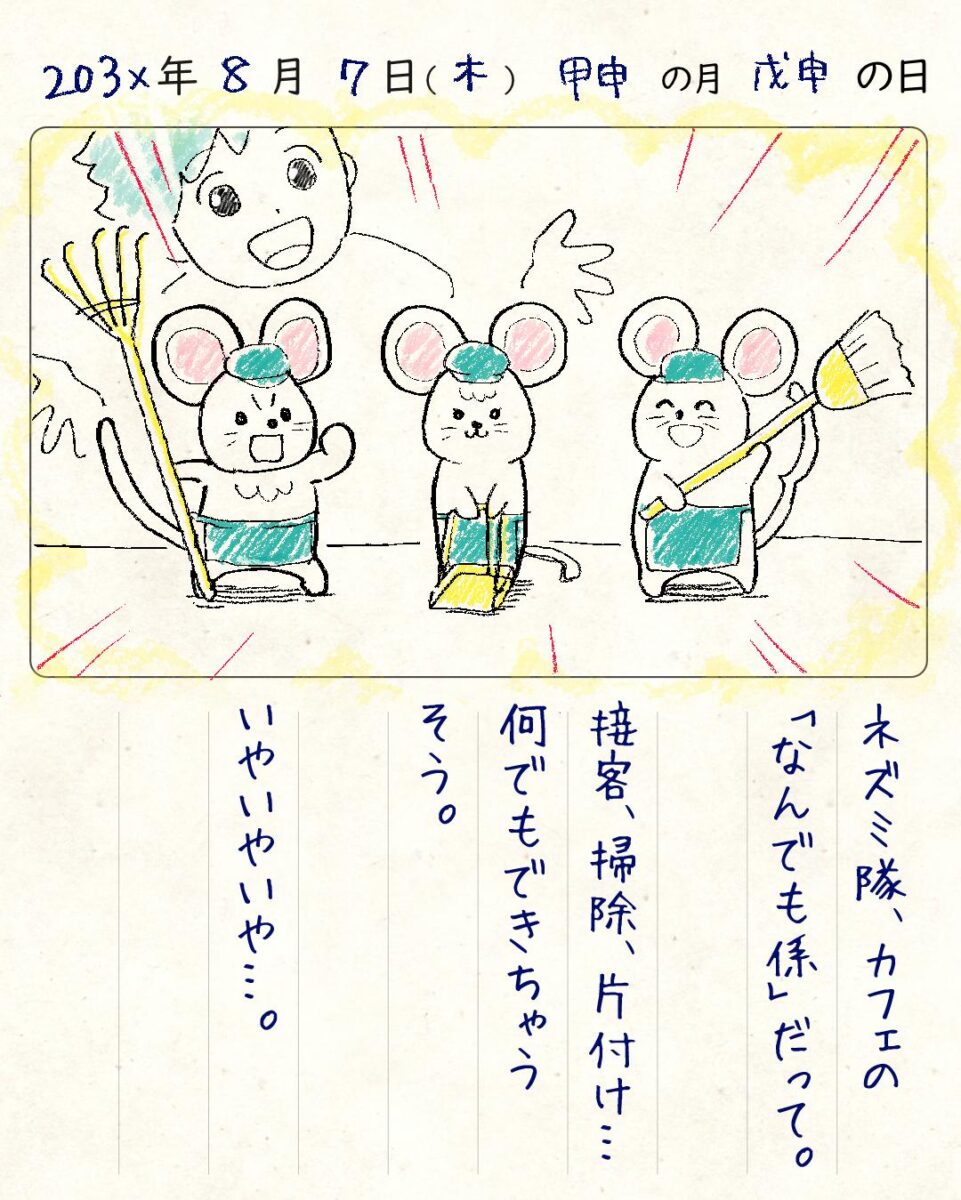 203x年 8月 7日(木) 甲申の月 戊申の日
ネズミ隊、カフェの
「なんでも係」だって。
接客、掃除、片付け…
何でもできちゃう
そう。
いやいやいや…。